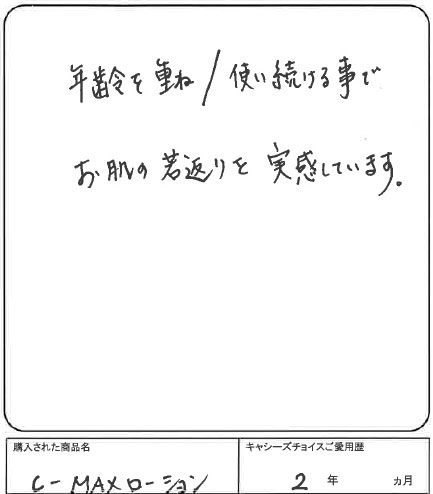 年齢を重ね/使い続ける事で
お肌の若返りを実感しています。
購入された商品名
キャシーズチョイスご愛用歴
C-MAXローション
2年 ヵ月